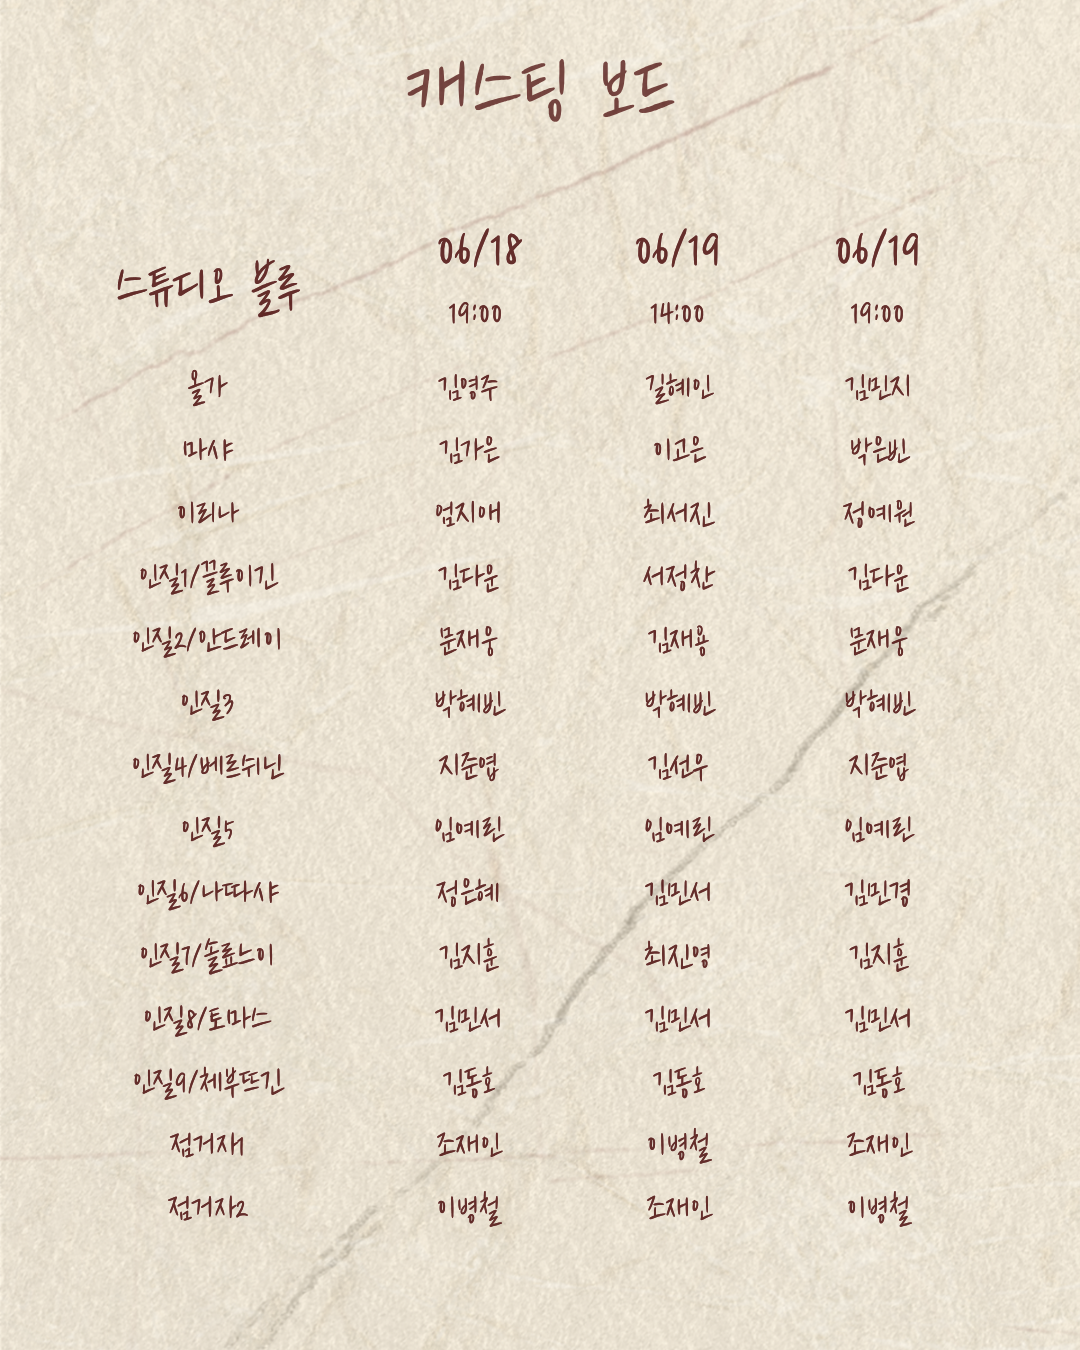 캐스팅 보드
스튜디오 블루 06/18 06/19 06/19
19:00 14:00 19:00
올가 김영주 길혜인 김민지
마샤 김가은 이고은 박은빈
이리나 엄지애 최서진 정예원
인질1/끌루이긴 김다운 서정찬 김다운
인질2/안드레이 문재웅 김재용 문재웅
인질3 박혜빈 박혜빈 박혜빈
인질4/베르쉬닌 지준엽 김선우 지준엽
인질5 임예린 임예린 임예린
인질6/나따샤 정은혜 김민서 김민경
인질7/솔료느이 김지훈 최진영 김지훈
인질8/토마스 김민서 김민서 김민서
인질9/체부뜨긴 김동호 김동호 김동호
점거자1 조재인 이병철 조재인
점거자2 이병철 조재인 이병철